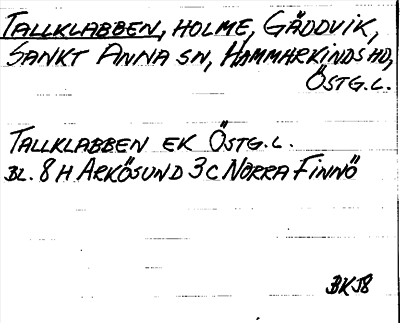 TALLKLABBEN, HOLME, GÄDDVIK,
SANKT ANNA SN, HAMMARKINDS HD,
ÖSTG.L.
TALLKLABBEN EK ÖSTG.L.
BL. 8 H ARKÖSUND 3 C NORRA FINNÖ
BKJ8